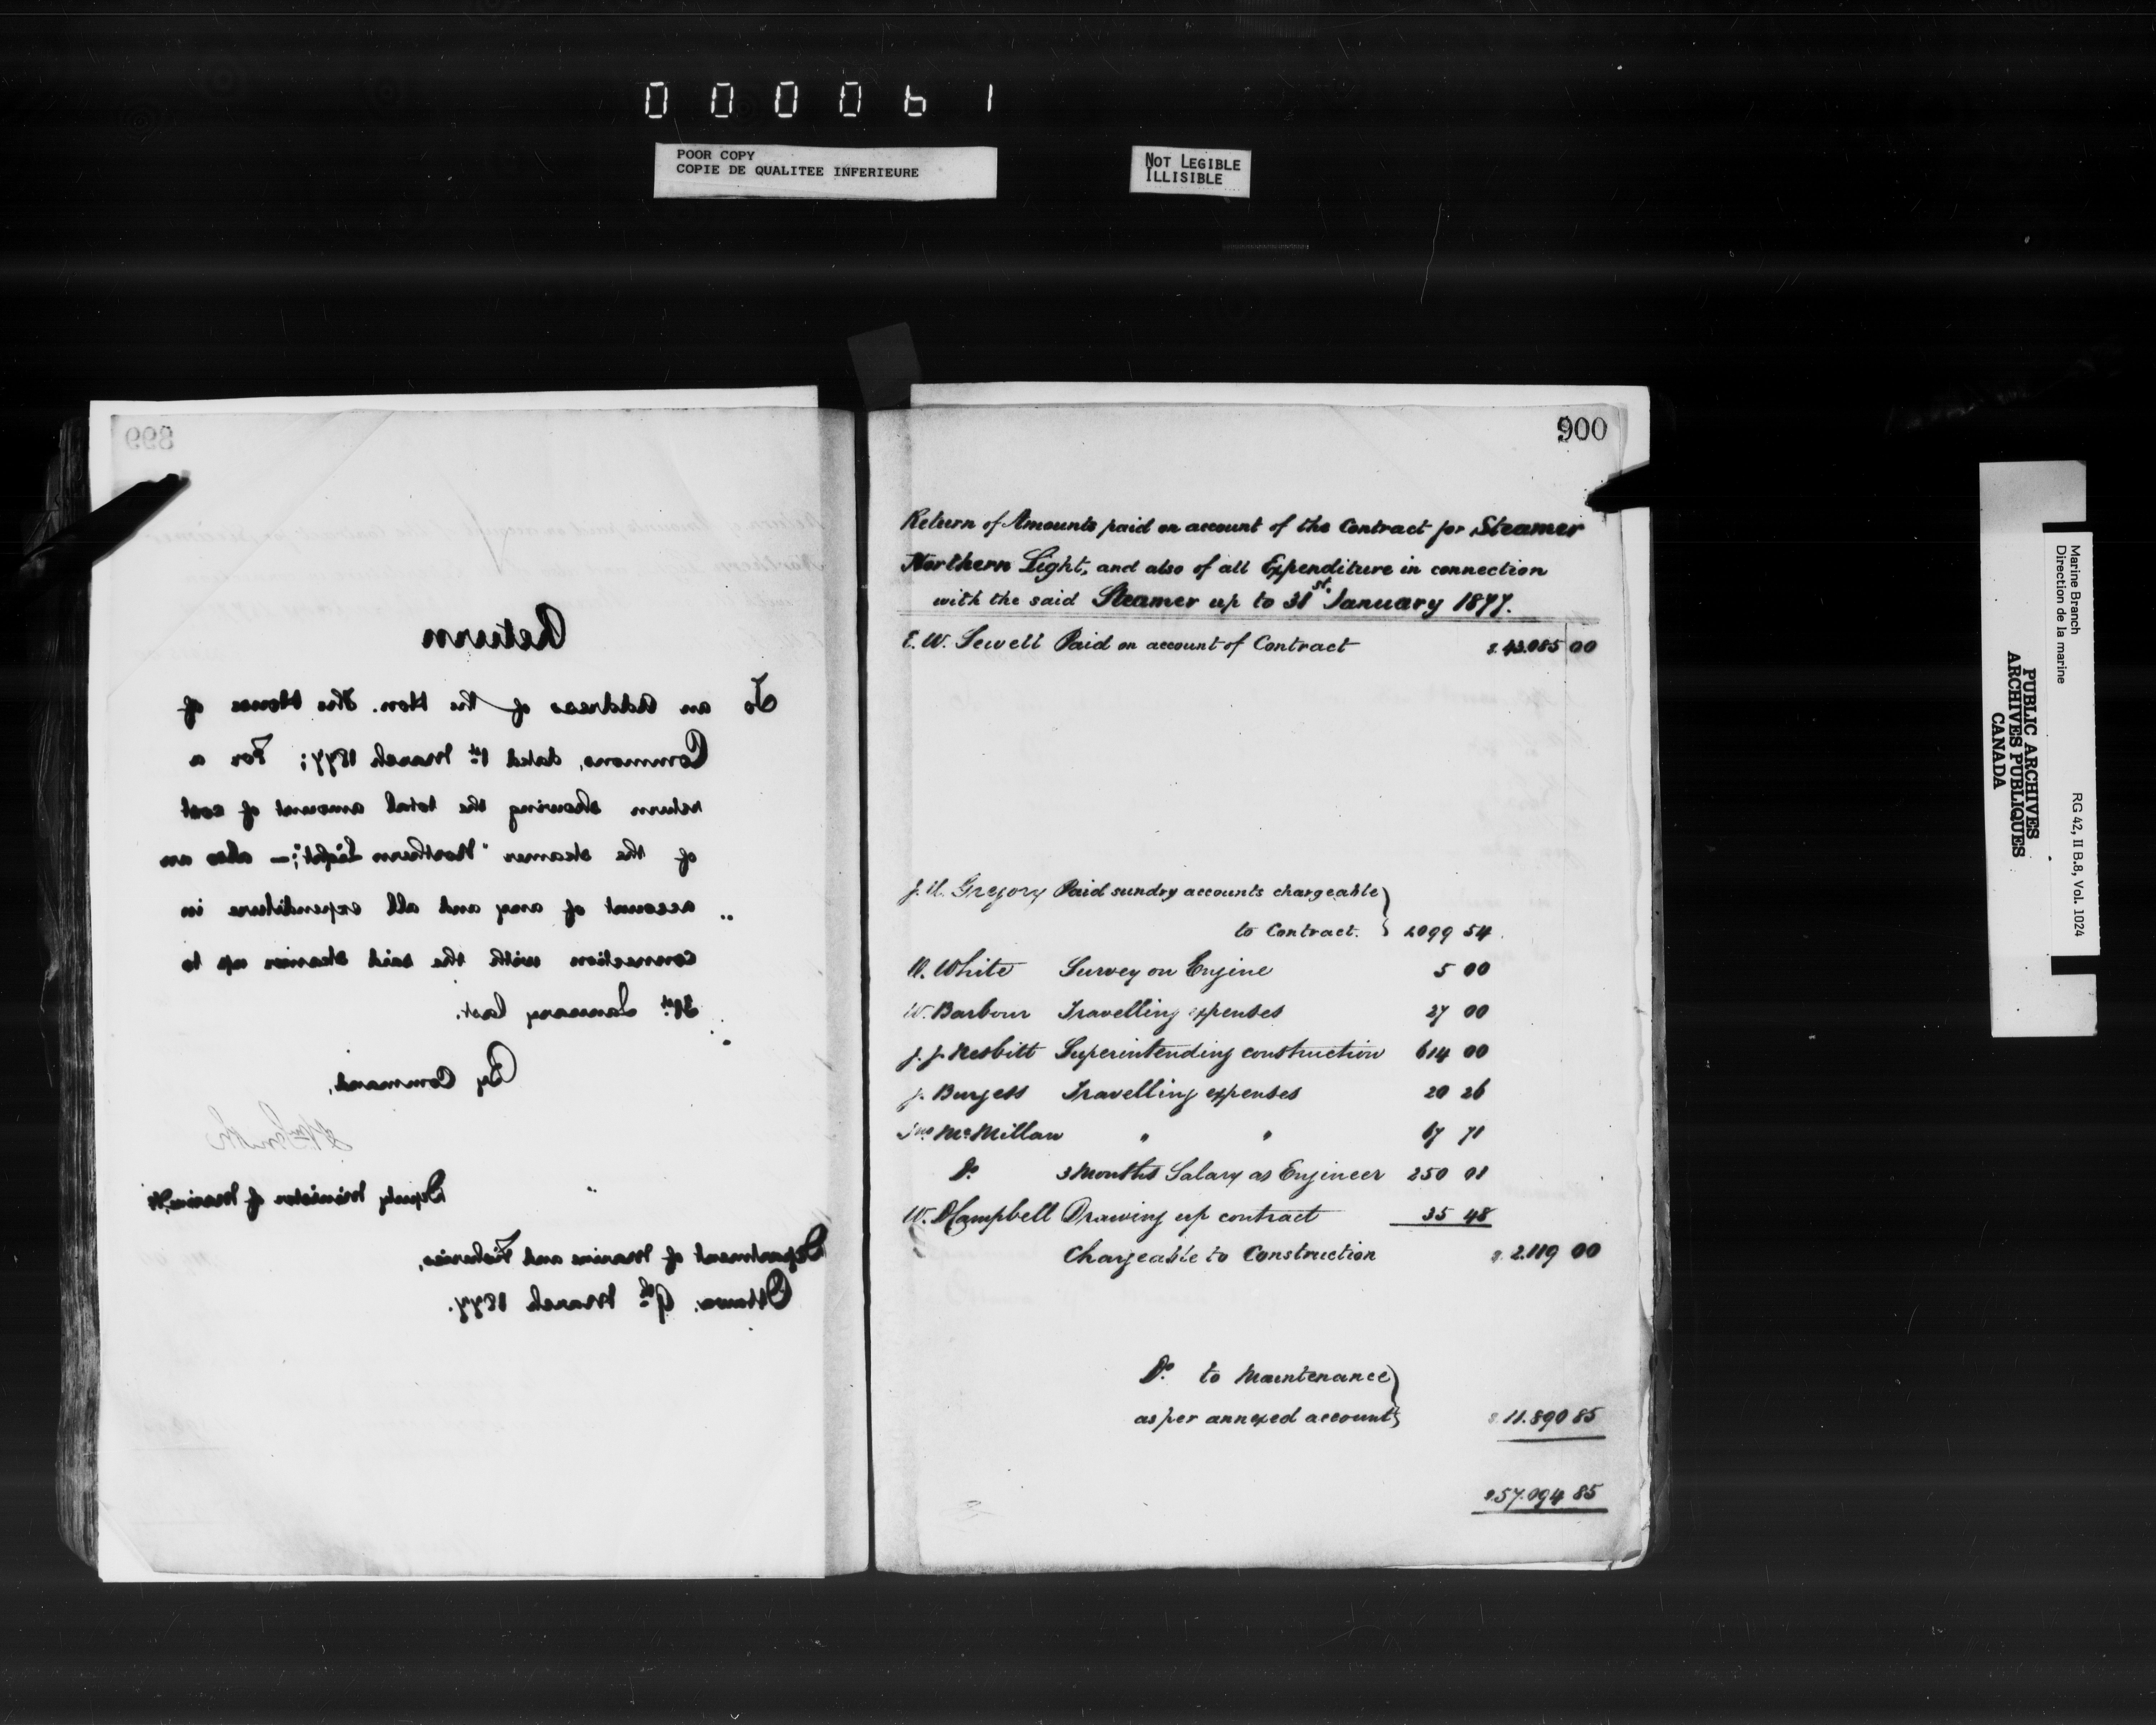 000061
POOR COPY
COPIE DE QUALITEE INFERIEURE
NOT LEGIBLE
ILLISIBLE
899
Return
To an Address of the Hon. The House of
Commons, dated 1st March 1877; For a
return showing the total amount of cost
of the steamer "Northern Light;" — also an
account of any and all expenditure in
connection with the said steamer up to
31st January last.
By Command,
Wm Smith
Deputy Minister of Marine &c
Department of Marine and Fisheries,
Ottawa. 9th March 1877.
900
Return of Amounts paid on account of the Contract for Steamer
Northern Light, and also of all Expenditure in connection
with the said Steamer up to 31st January 1877.
E. W. Sewell Paid on account of Contract $ 43.085 00
J. U. Gregory Paid sundry accounts chargeable
to Contract. 1099 54
W. White Survey on Engine 5 00
W. Barbour Travelling expenses 27 00
J. J. Nesbitt Superintending construction 614 00
J. Burgess Travelling expenses 20 26
Jno McMillan " " 67 71
Do. 3 Months Salary as Engineer 250 01
W. D Campbell Drawing up contract 35 48
Chargeable to Construction $ 2.119 00
Do. to Maintenance
as per annexed account $ 11.890 85
$ 57.094 85
Marine Branch
Direction de la marine
RG 42, II B.8, Vol. 1024
PUBLIC ARCHIVES
ARCHIVES PUBLIQUES
CANADA